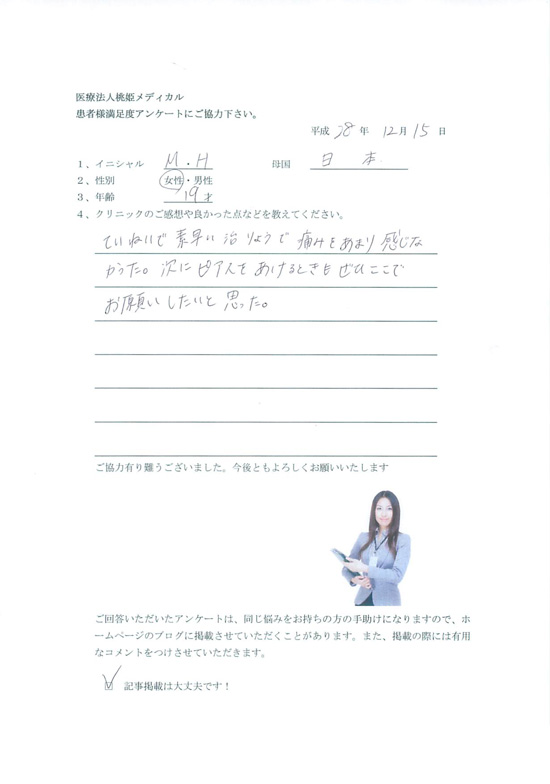 医療法人桃姫メディカル
患者様満足度アンケートにご協力下さい。
平成 28 年 12月 15 日
1、イニシャル M・H 母国 日本
2、性別 女性・男性
3、年齢 19才
4、クリニックのご感想や良かった点などを教えてください。
ていねいで素早い治りょうで痛みをあまり感じな
かった。次にピアスをあけるときもぜひここで
お願いしたいと思った。
ご協力有り難うございました。今後ともよろしくお願いいたします
ご回答いただいたアンケートは、同じ悩みをお持ちの方の手助けになりますので、ホ
ームページのブログに掲載させていただくことがあります。また、掲載の際には有用
なコメントをつけさせていただきます。
☑ 記事掲載は大丈夫です！